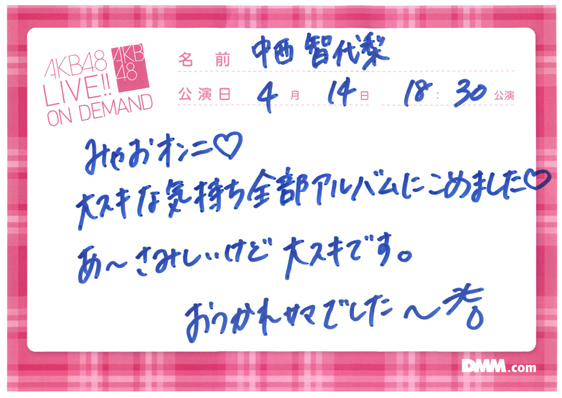 AKB48
LIVE!!
ON DEMAND
AKB
48
名前 中西 智代梨
公演日 4月 14日 18:30 公演
みゃおオンニ♡
大スキな気持ち全部アルバムにこめました♡
あ〜さみしいけど 大スキです。
おつかれサマでした〜
DMM.com